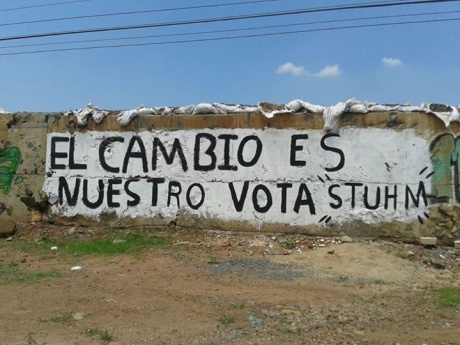 EL CAMBIO ES
NUESTRO VOTA STUHM